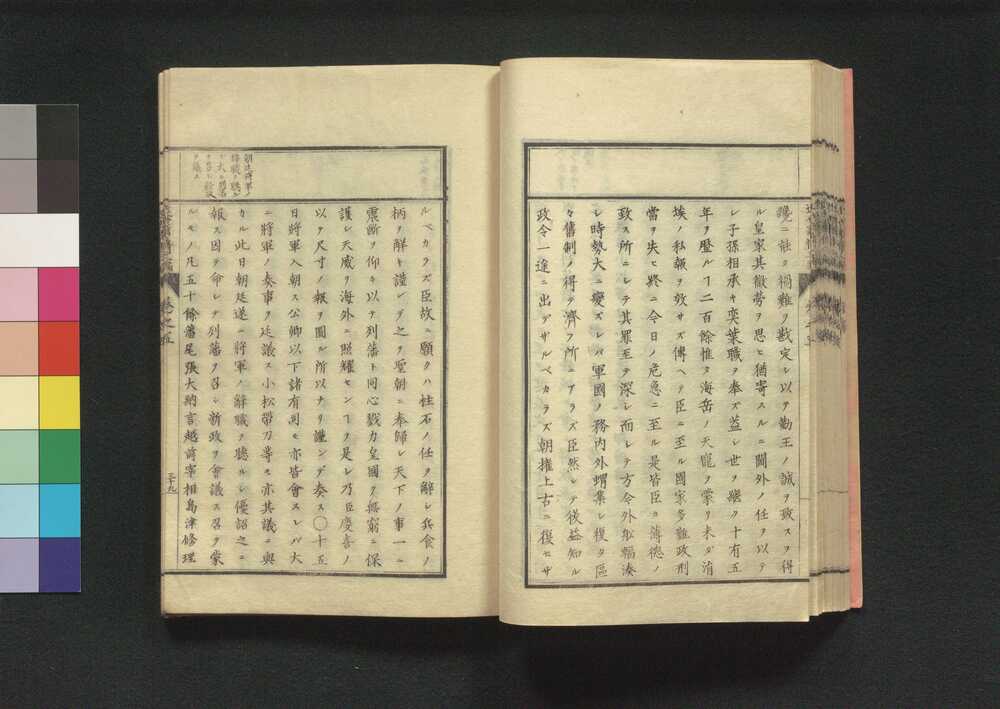 纔ニ註ク禍難ヲ戡定シ以テ勤王ノ誠ヲ致スヲ得
ル皇家其微勞ヲ思ヒ猶寄スルニ閫外ノ任ヲ以テ
シ子孫相承キ奕葉職ヲ奉ズ蓋シ世ヲ繼ク十有五
年ヲ歴ルヿ二百餘惟フ海岳ノ天寵ヲ蒙リ未ダ涓
埃ノ私報ヲ效サズ傳ヘテ臣ニ至ル國家多難政刑
當ヲ失ヒ終ニ今日ノ危急ニ至ル是皆臣ノ薄德ノ
致ス所ニシテ其罪至テ深シ而シテ方今外舩輻湊
シ時勢大ニ變ズレバ軍國ノ務內外蝟集シ復タ區
々舊制ノ得テ濟フ所ニアラズ臣然シテ後益知ル
政令一途ニ出デザルベカラズ朝權上古ニ復セザ
ルベカラズ臣故ニ願クハ柱石ノ任ヲ解シ兵食ノ
柄ヲ解キ謹ンデ之ヲ聖朝ニ奉歸シ天下ノ事一ニ
宸斷ヲ仰キ以テ列藩ト同心戮力皇國ヲ無窮ニ保
護シ天威ヲ海外ニ照耀センヿヲ是レ乃臣慶喜ノ
以テ尺寸ノ報ヲ圖ル所以ナリ謹ンデ奏ス〇十五
日將軍入朝ス公卿以下諸有司モ亦皆會スレバ大
ニ將軍ノ奏事ヲ廷議ス小松帶刀等モ亦其議ニ與
カル此日朝廷遂ニ將軍ノ辭職ヲ聽ルシ優詔之ニ
報ス因テ命シテ列藩ヲ召シ新政ヲ會議ス召ヲ蒙
ルモノ凡五十餘藩尾張大納言越前宰相島津修理
朝廷將軍ノ
辭職ヲ聽ルシ
大ニ列藩
ヲ召シ新政
ヲ議ス
卷之五
三十九